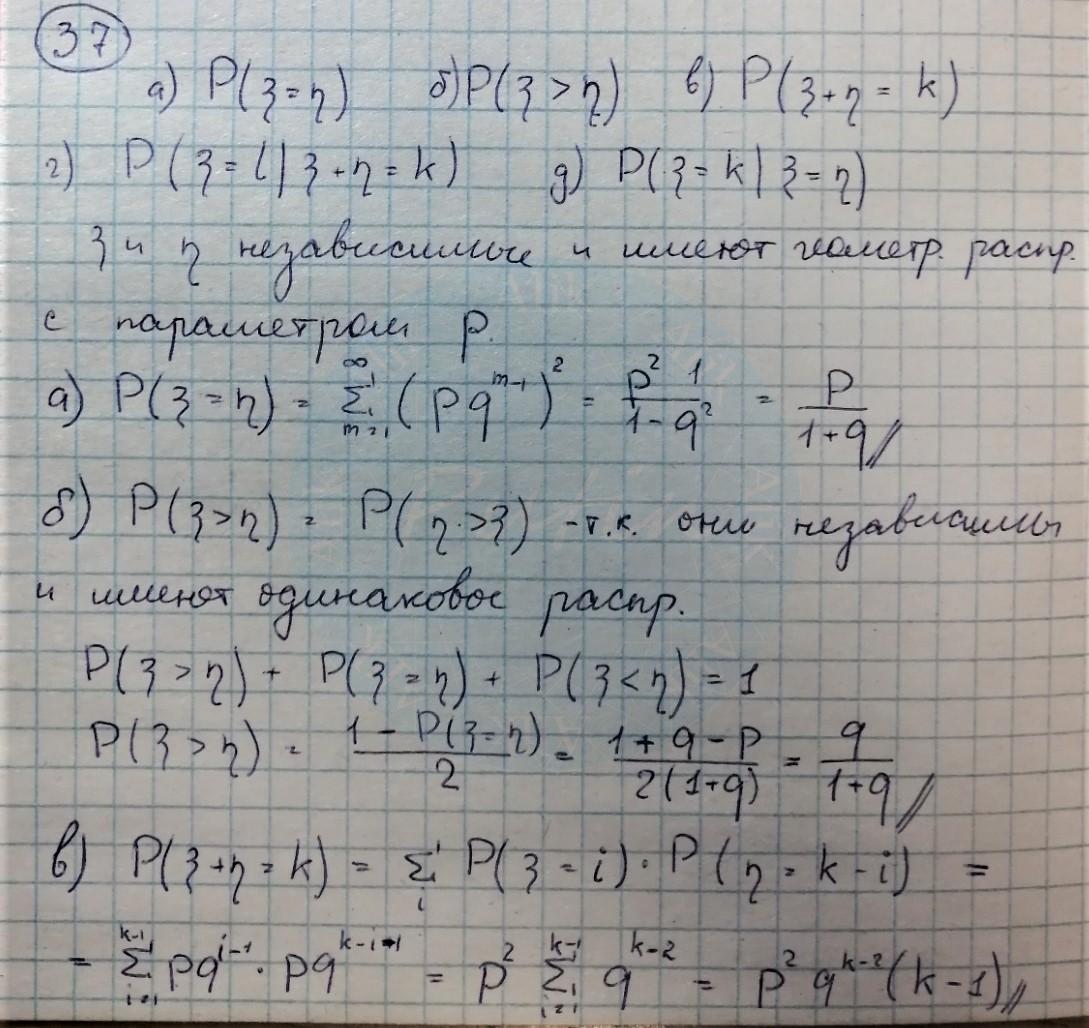 37
а) P(ξ=η) б) P(ξ > η) в) P(ξ+η = k)
г) P(ξ=l | ξ+η=k) д) P(ξ=k | ξ=η)
ξ и η независимые и имеют геометр. распр.
с параметром p.
а) P(ξ=η) = ∑_{m=1}^{∞} (pq^{m-1})^2 = \frac{p^2 1}{1-q^2} = \frac{p}{1+q} //
б) P(ξ>η) = P(η>ξ) - т.к. они независимы
и имеют одинаковое распр.
P(ξ>η) + P(ξ=η) + P(ξ<η) = 1
P(ξ>η) = \frac{1-P(ξ=η)}{2} = \frac{1+q-p}{2(1+q)} = \frac{q}{1+q} //
в) P(ξ+η=k) = ∑_i P(ξ=i)·P(η=k-i) =
= ∑_{i=1}^{k-1} pq^{i-1}·pq^{k-i-1} = p^2 ∑_{i=1}^{k-1} q^{k-2} = p^2 q^{k-2}(k-1) //